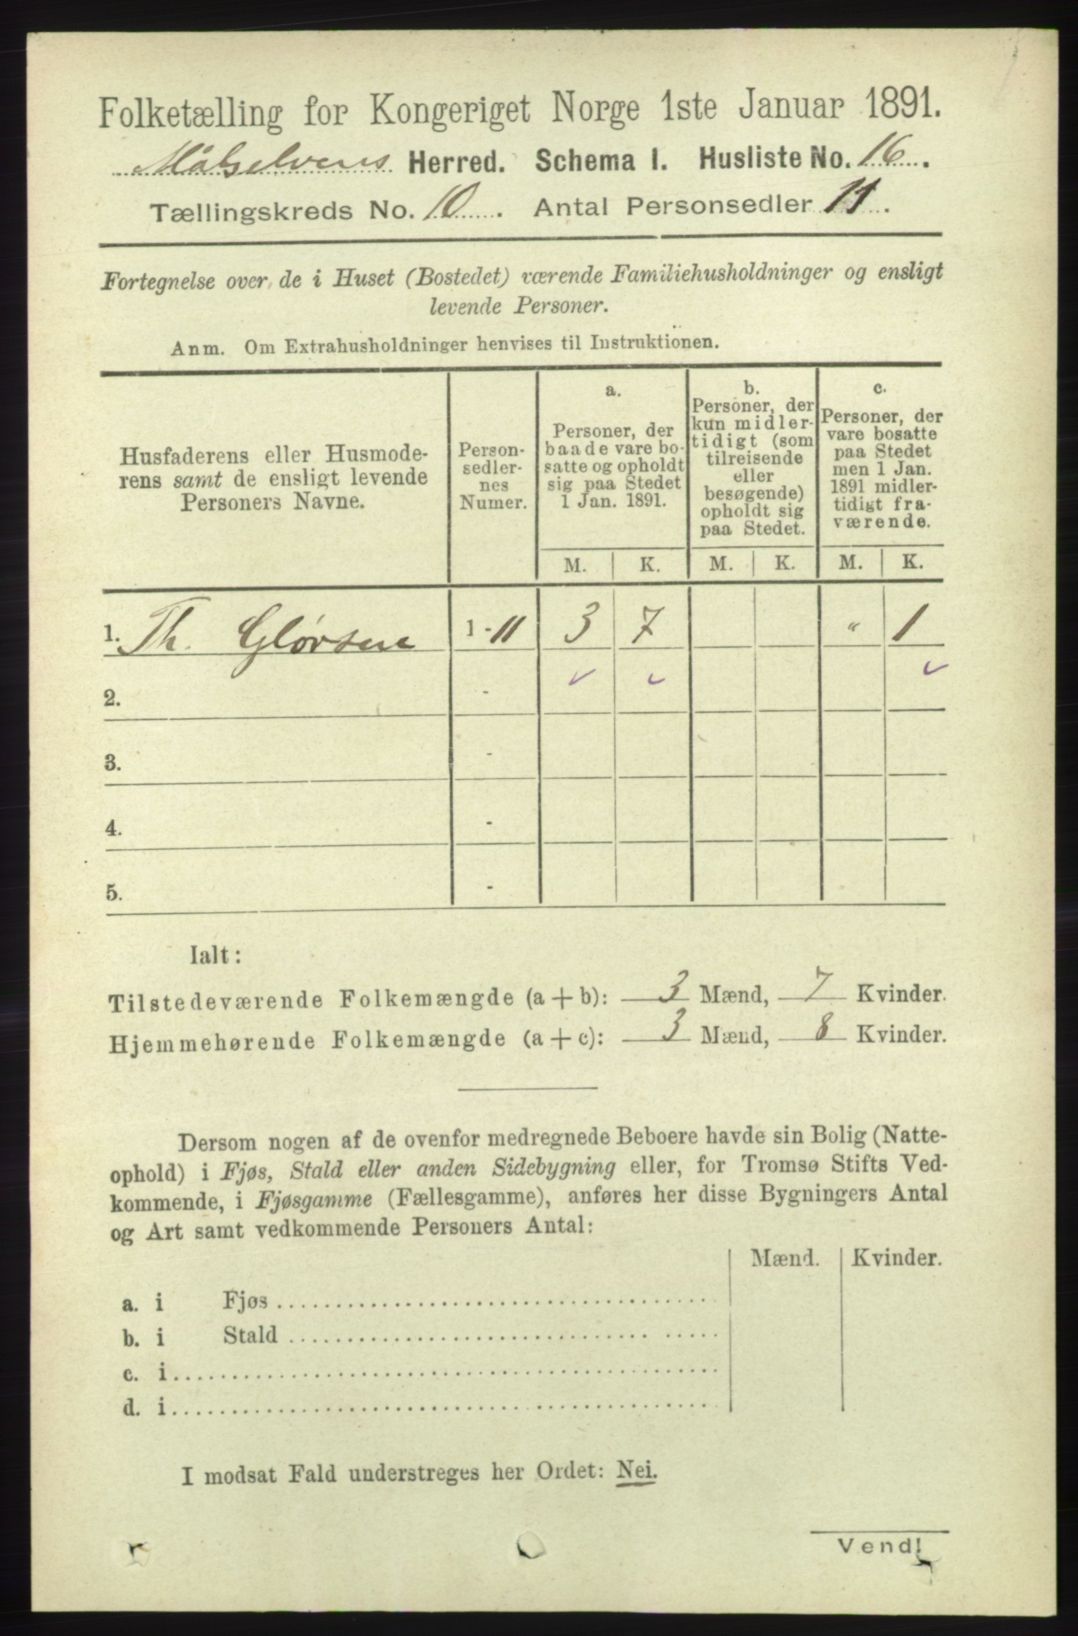 Folketælling for Kongeriget Norge 1ste Januar 1891.
Målselvens Herred. Schema I. Husliste No. 16.
Tællingskreds No. 10. Antal Personsedler 11.
Fortegnelse over de i Huset (Bostedet) værende Familiehusholdninger og ensligt
levende Personer.
Anm. Om Extrahusholdninger henvises til Instruktionen.
Husfaderens eller Husmode-
rens samt de ensligt levende
Personers Navne.
Person-
sedler-
nes
Numer.
a.
Personer, der
baade vare bo-
satte og opholdt
sig paa Stedet
1 Jan. 1891.
b.
Personer, der
kun midler-
tidigt (som
tilreisende
eller
besøgende)
opholdt sig
paa Stedet.
c.
Personer, der
vare bosatte
paa Stedet
men 1 Jan.
1891 midler-
tidigt fra-
værende.
M. K. M. K. M. K.
1. Th. Glørsen 1-11 3 7 " 1
2. -
3. -
4. -
5. -
Ialt:
Tilstedeværende Folkemængde (a + b): 3 Mænd, 7 Kvinder.
Hjemmehørende Folkemængde (a + c): 3 Mænd, 8 Kvinder.
Dersom nogen af de ovenfor medregnede Beboere havde sin Bolig (Natte-
ophold) i Fjøs, Stald eller anden Sidebygning eller, for Tromsø Stifts Ved-
kommende, i Fjøsgamme (Fællesgamme), anføres her disse Bygningers Antal
og Art samt vedkommende Personers Antal:
Mænd. Kvinder.
a. i Fjøs
b. i Stald
c. i
d. i
I modsat Fald understreges her Ordet: Nei.
Vend!